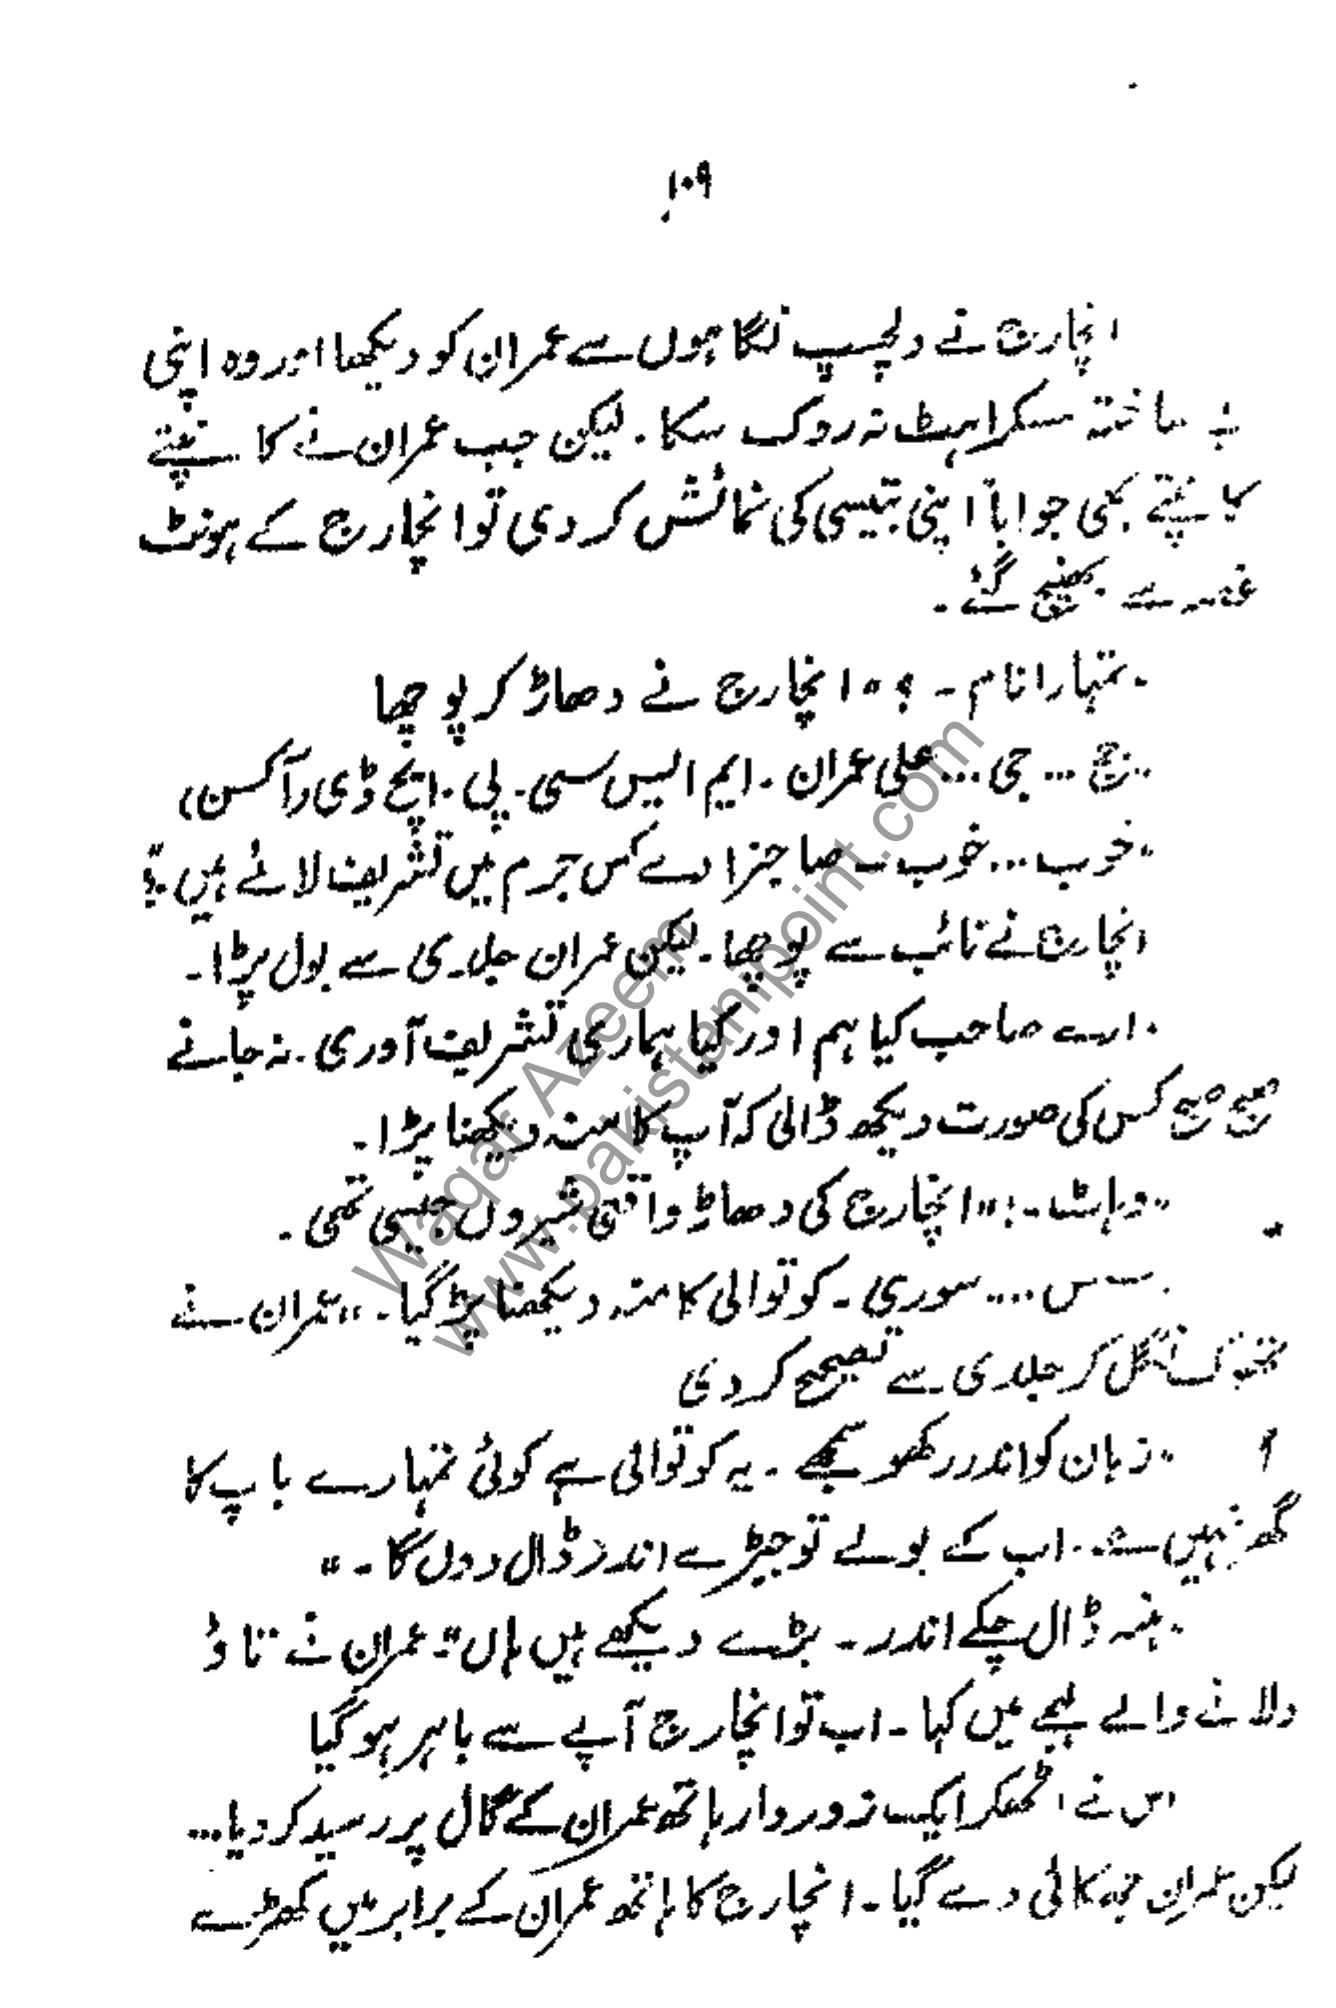 ۱۰۹
انچارج نے دلچسپ نگاہوں سے عمران کو دیکھا اور وہ اپنی
بے ساختہ مسکراہٹ نہ روک سکا۔ لیکن جب عمران نے کانپتے
کانپتے بھی جواباً اپنی بتیسی کی نمائش کر دی تو انچارج کے ہونٹ
غصہ سے بھنچ گئے۔
"تمہارا نام۔؟" انچارج نے دھاڑ کر پوچھا
"جج ... جی ... علی عمران۔ ایم ایس سی۔ پی۔ ایچ ڈی (آکسن)
"خوب ... خوب۔ صاحبزادے کس جرم میں تشریف لائے ہیں۔؟"
انچارج نے نائب سے پوچھا۔ لیکن عمران جلدی سے بول پڑا۔
"ارے صاحب کیا ہم اور کیا ہماری تشریف آوری۔ نہ جانے
صبح صبح کس کی صورت دیکھ ڈالی کہ آپ کا منہ دیکھنا پڑا۔
"وہاٹ۔!" انچارج کی دھاڑ واقعی شیروں جیسی تھی۔
"سس .... سوری۔ کوتوالی کا منہ دیکھنا پڑ گیا۔" عمران نے
تھوک نگل کر جلدی سے تصحیح کر دی
"زبان کو اندر رکھو سمجھے۔ یہ کوتوالی ہے کوئی تمہارے باپ کا
گھر نہیں ہے۔ اب کے بولے تو جبڑے اندر ڈال دوں گا۔"
"ہنہ ڈال چکے اندر۔ بڑے دیکھے ہیں ہاں"۔ عمران نے تاؤ
دلانے والے لہجے میں کہا۔ اب تو انچارج آپے سے باہر ہو گیا
اس نے اٹھکر ایک زوردار ہاتھ عمران کے گال پر رسید کر دیا ...
لیکن عمران جھکائی دے گیا۔ انچارج کا ہاتھ عمران کے برابر میں کھڑے
Waqar Azeem
www.pakistanipoint.com